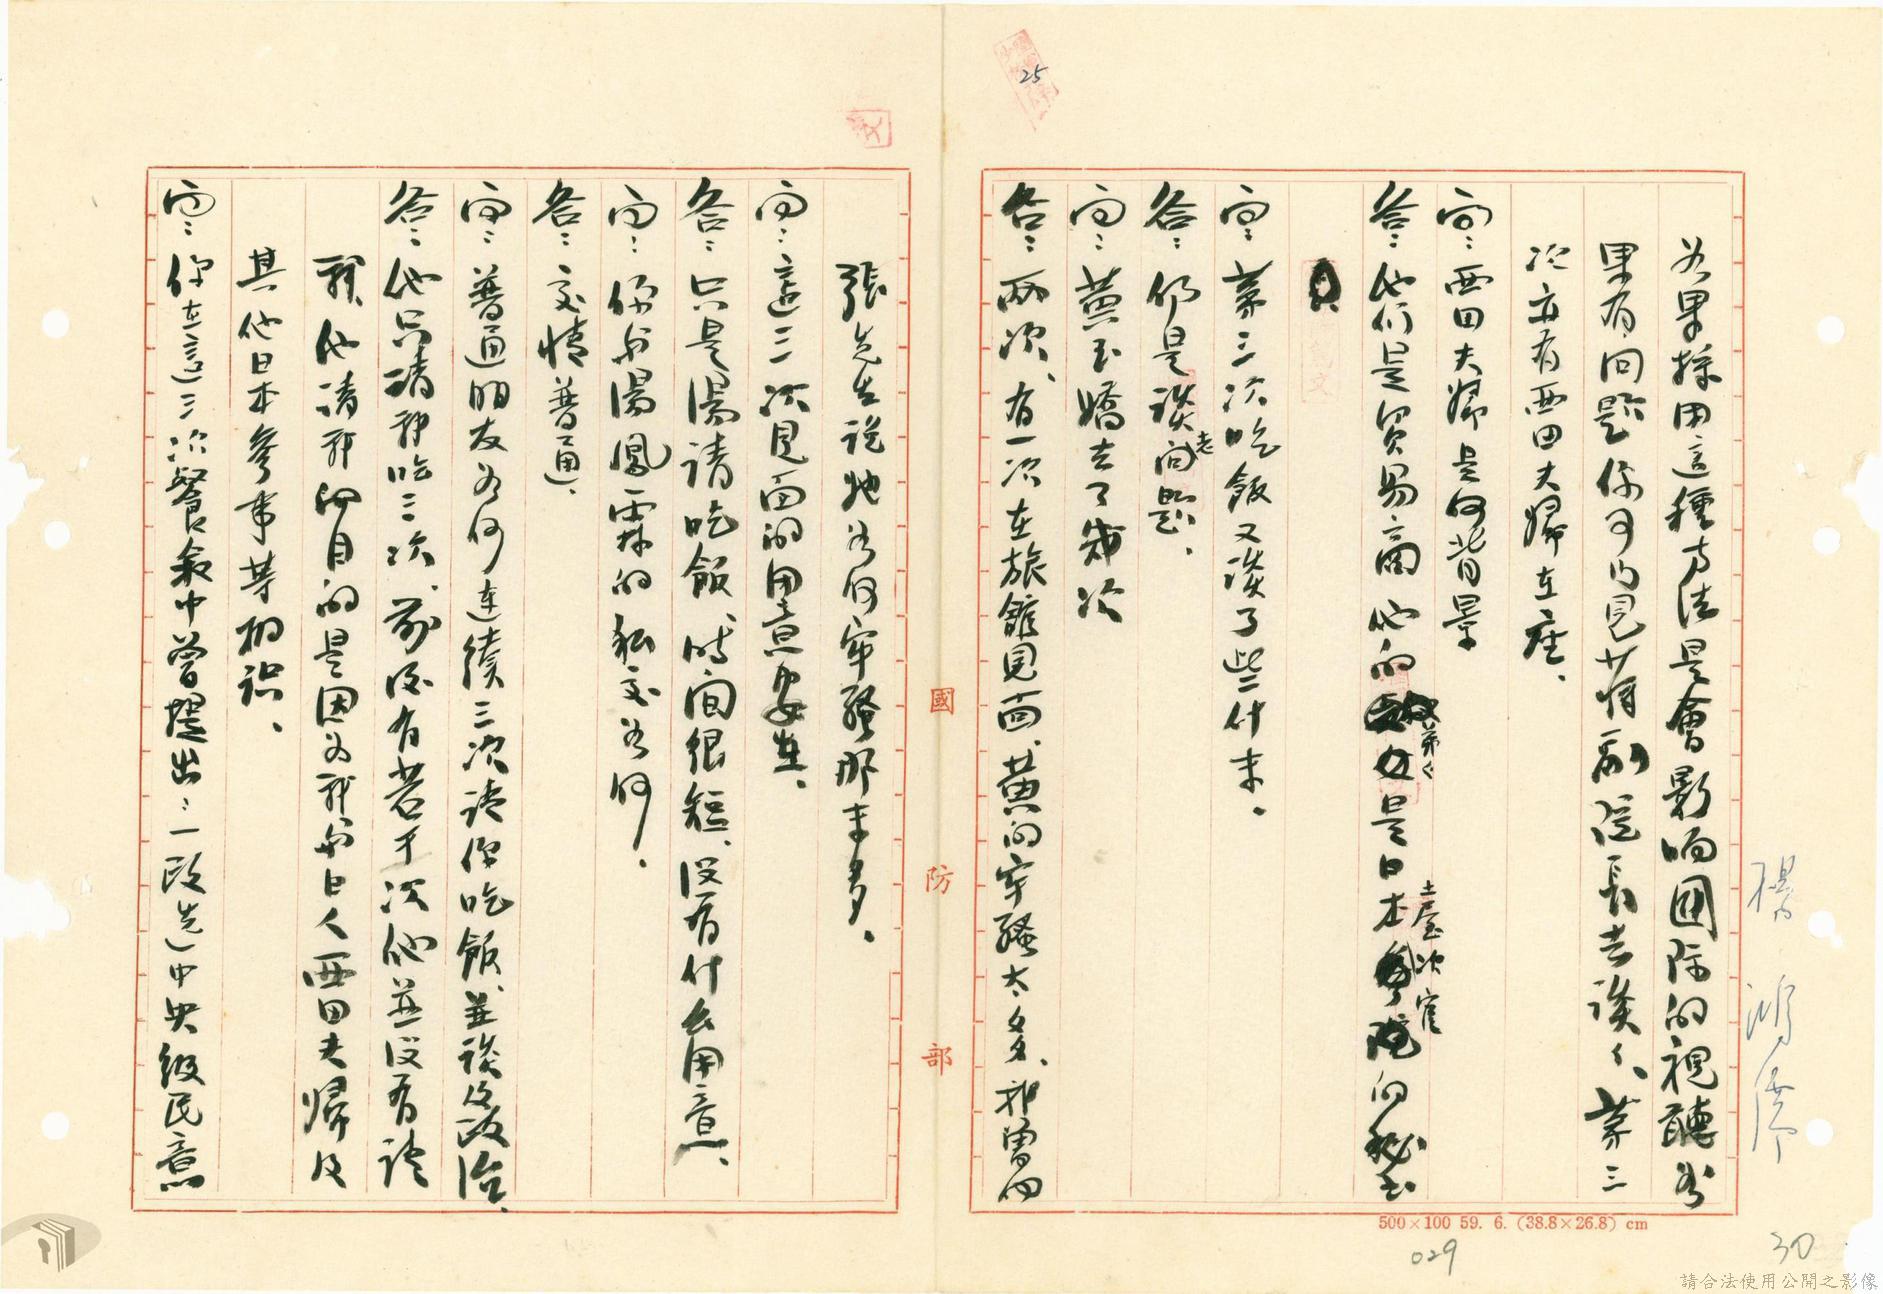 25
如果採用這種方法是會影响囯际的視聽如
果有问題你可以見蔣副院長去談々、第三
次亦有西田夫婦在座、
问：西田夫婦是何背景
答：他们是貿易商他的弟々是日本土屋次官的秘书
问：第三次吃飯又談了些什末。
答：仍是談老问題、
问：黄玉嬌去了幾次
答：兩次、有一次在旅館見面、黄的牢騷太多、我曾向
張先生說她为何牢騷那末多。
问：這三次見面的用意安在。
答：只是湯請吃飯、時间很短、没有什么用意、
问：你与湯鳳霖的私交为何。
答：交情普通、
问：普通朋友为何連續三次請你吃飯、並談及政治、
答：他只請我吃三次、前后有若干次他並没有請
我、他請我的目的是因为我与日人西田夫婦及
其他日本參事等相識、
问：你在這三次餐敘中曾提出：一改选中央級民意
國防部
500×100 59. 6. (38.8×26.8) cm
029
30
請合法使用公開之影像